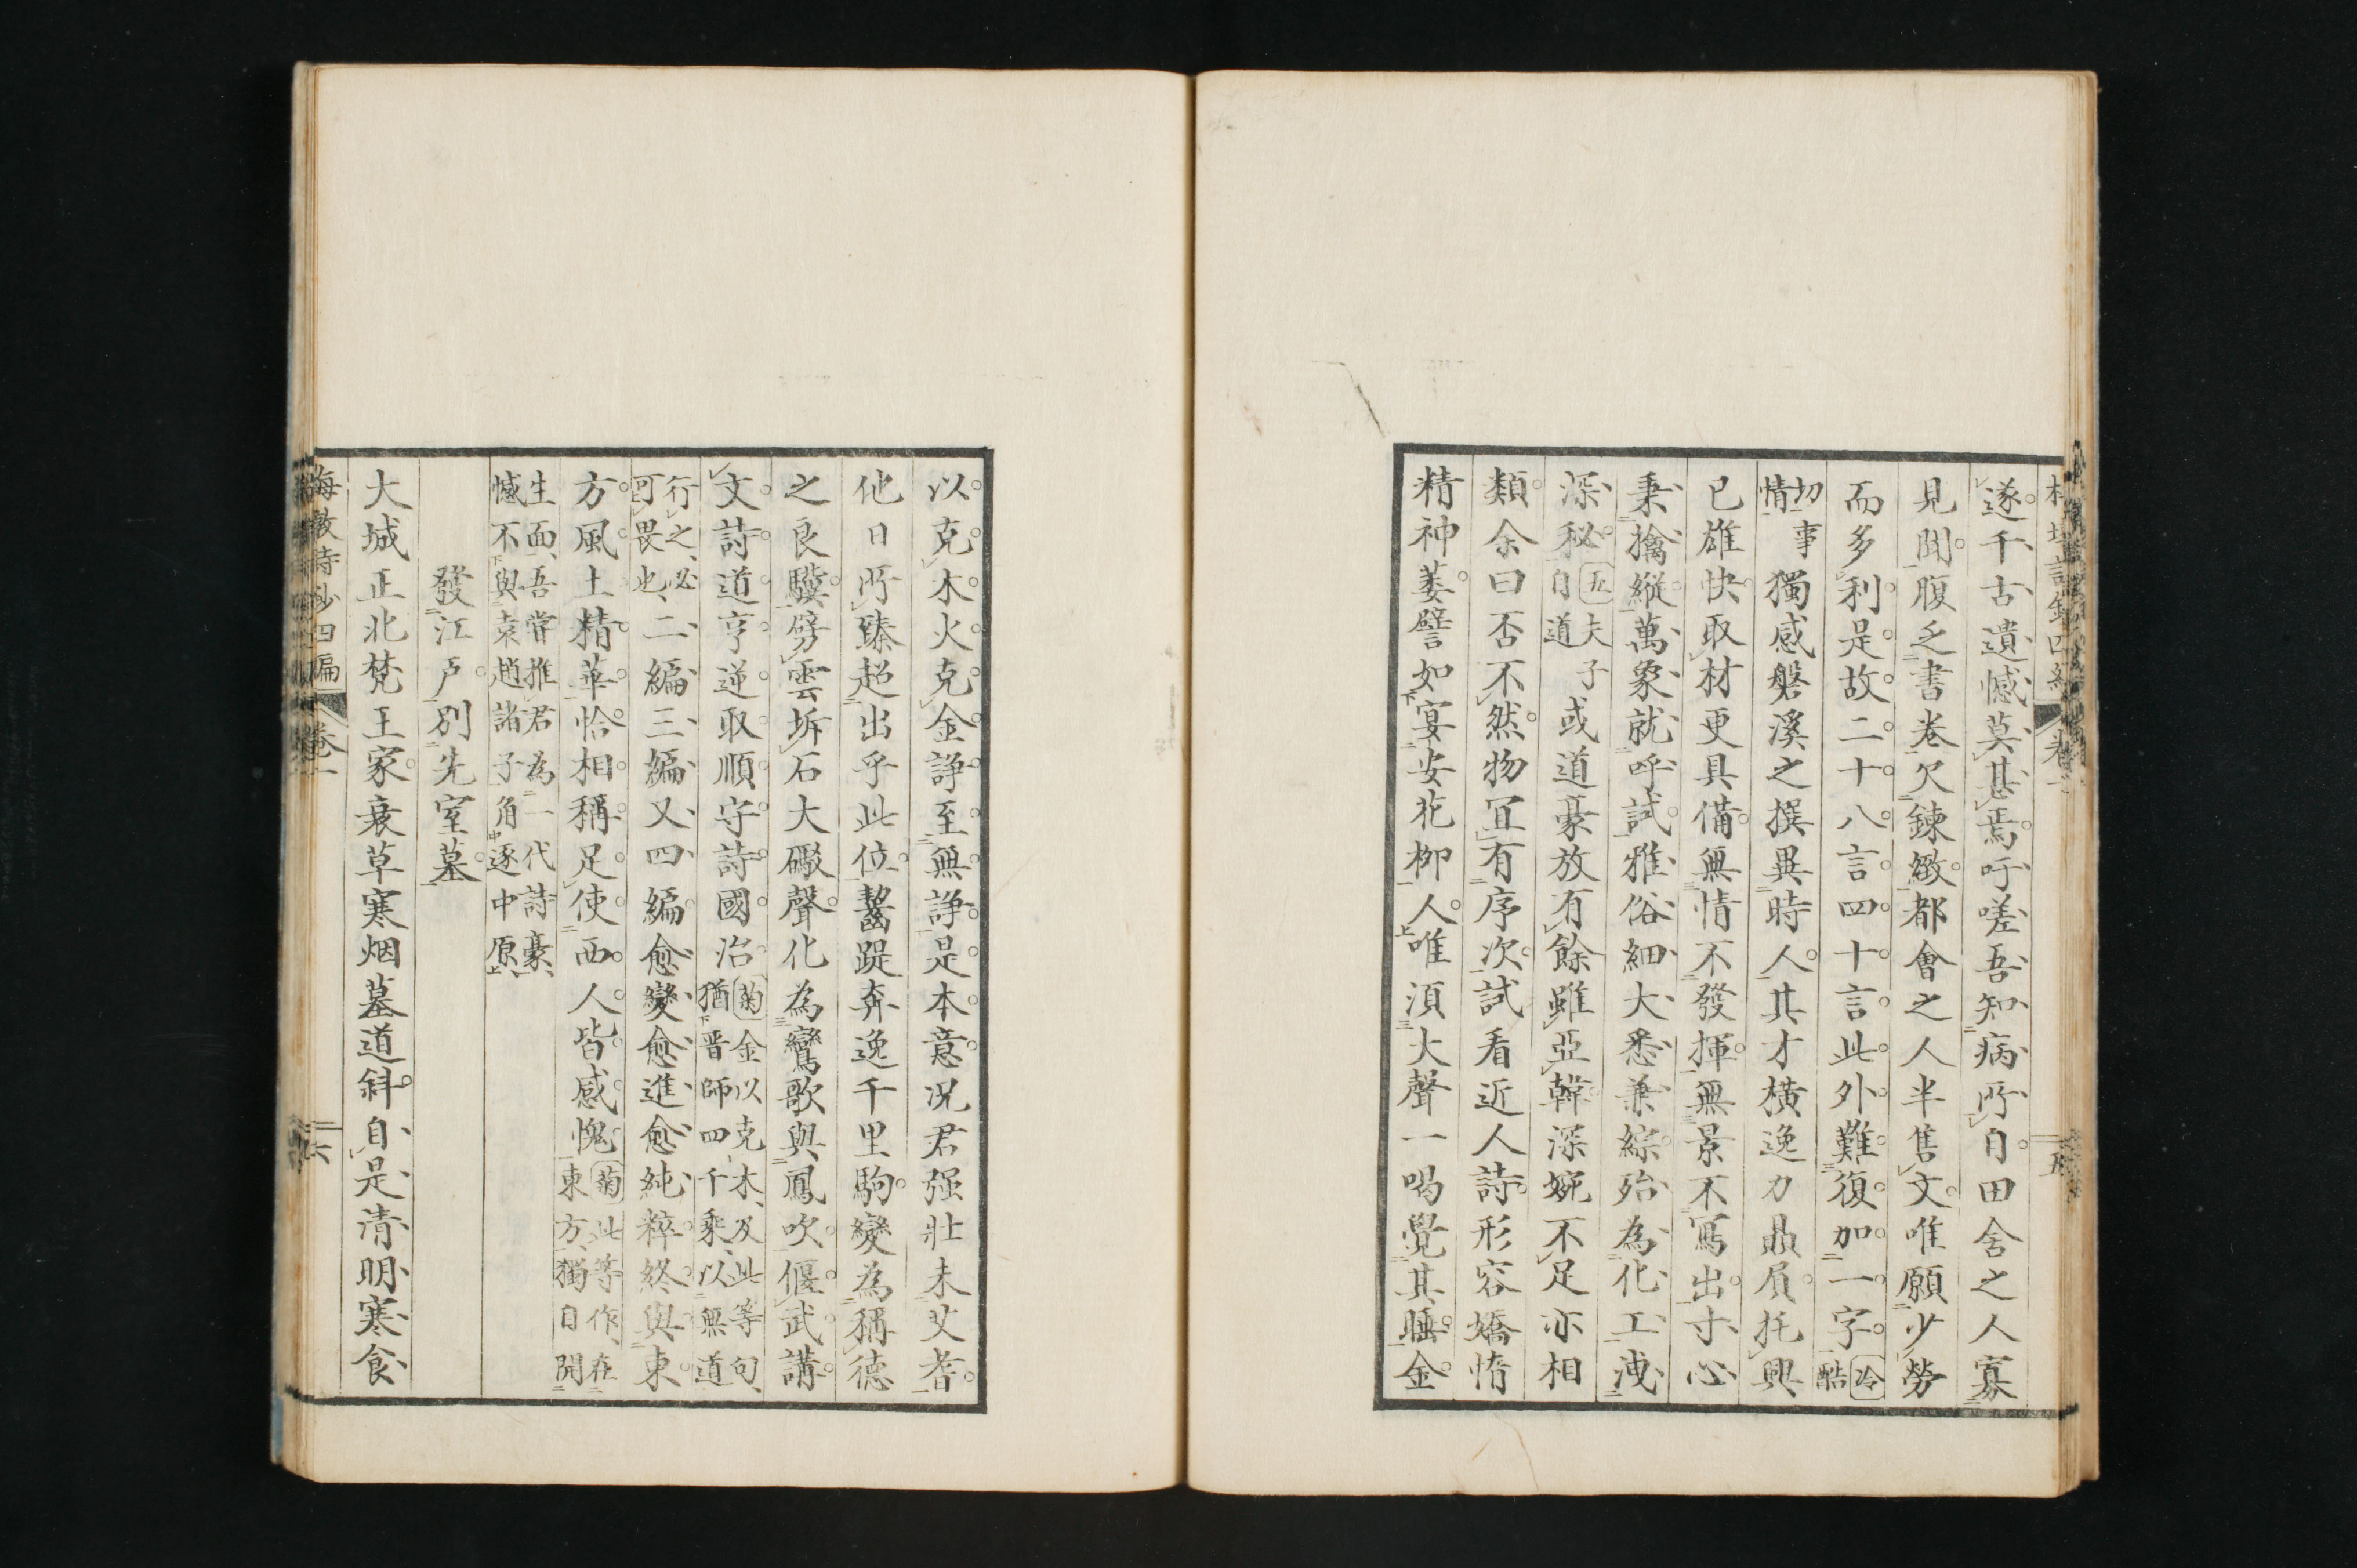 遂千古遺憾莫甚焉吁嗟吾知病所自田舍之人寡
見聞腹乏書卷欠鍊緻都會之人半售文唯願少勞
而多利是故二十八言四十言此外難復加一字冷酷
切事情獨感磐溪之撰異時人其才橫逸力贔屓托興
已雄快取材更具備無情不發揮無景不寫出寸心
秉擒縱萬象就呼試雅俗細大悉兼綜殆為化工洩
深秘五夫子自道或道豪放有餘雖亞韓深婉不足亦相
類余曰否不然物宜有序次試看近人詩形容嬌惰
精神萎譬如宴安花柳人唯須大聲一喝覺其睡金
以克木火克金諍至無諍是本意況君强壯未艾耆
他日所臻超出乎此位齧踶奔逸千里駒變為稱德
之良驥劈雲坼石大礟聲化為鸞歌與鳳吹偃武講
文詩道亨逆取順守詩國治菊金以克木及此等句、
猶晋師四千乘、以無道
行之、必
可畏也、二編三編又四編愈變愈進愈純粹終與東
方風土精華恰相稱足使西人皆感愧菊此等作、在
東方、獨自開
生面、吾嘗推君為一代詩豪、
憾不與袁趙諸子角逐中原、
發江戸別先室墓
大城正北梵王家衰草寒烟墓道斜自是清明寒食
卷一
六
四編
五